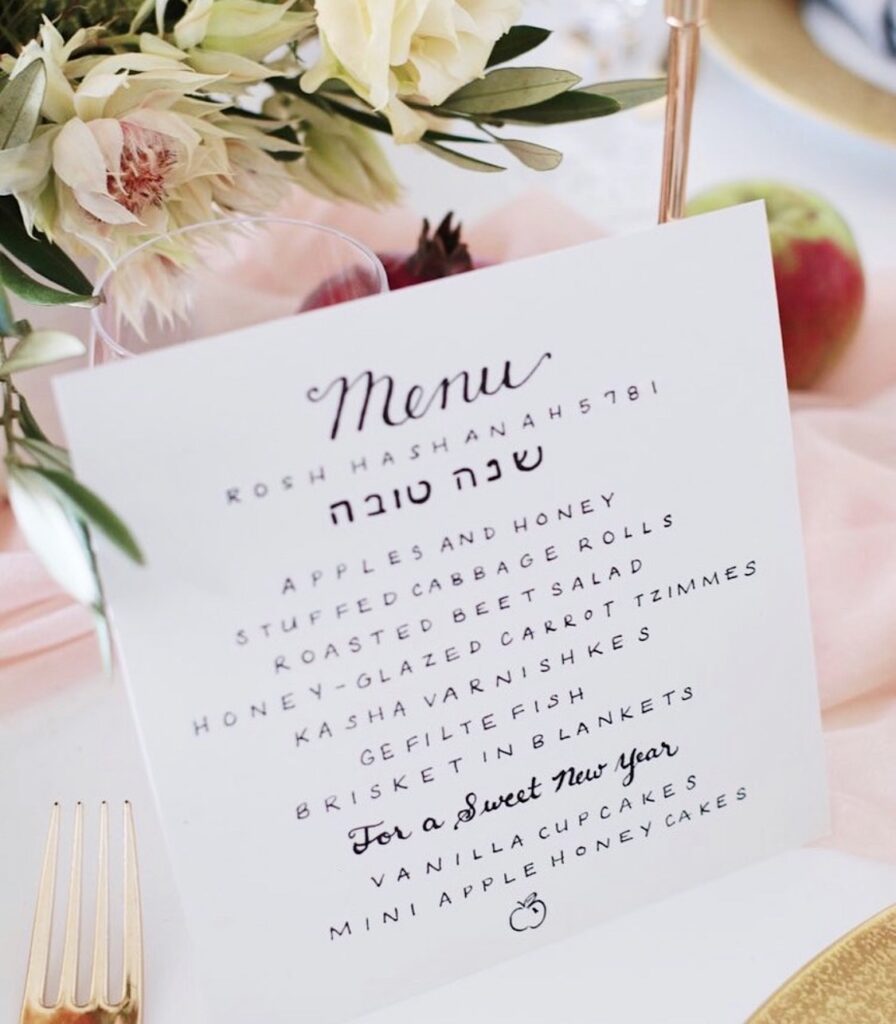 Menu
ROSH HASHANAH 5781
שנה טובה
APPLES AND HONEY
STUFFED CABBAGE ROLLS
ROASTED BEET SALAD
HONEY-GLAZED CARROT TZIMMES
KASHA VARNISHKES
GEFILTE FISH
BRISKET IN BLANKETS
For a Sweet New Year
VANILLA CUPCAKES
MINI APPLE HONEY CAKES